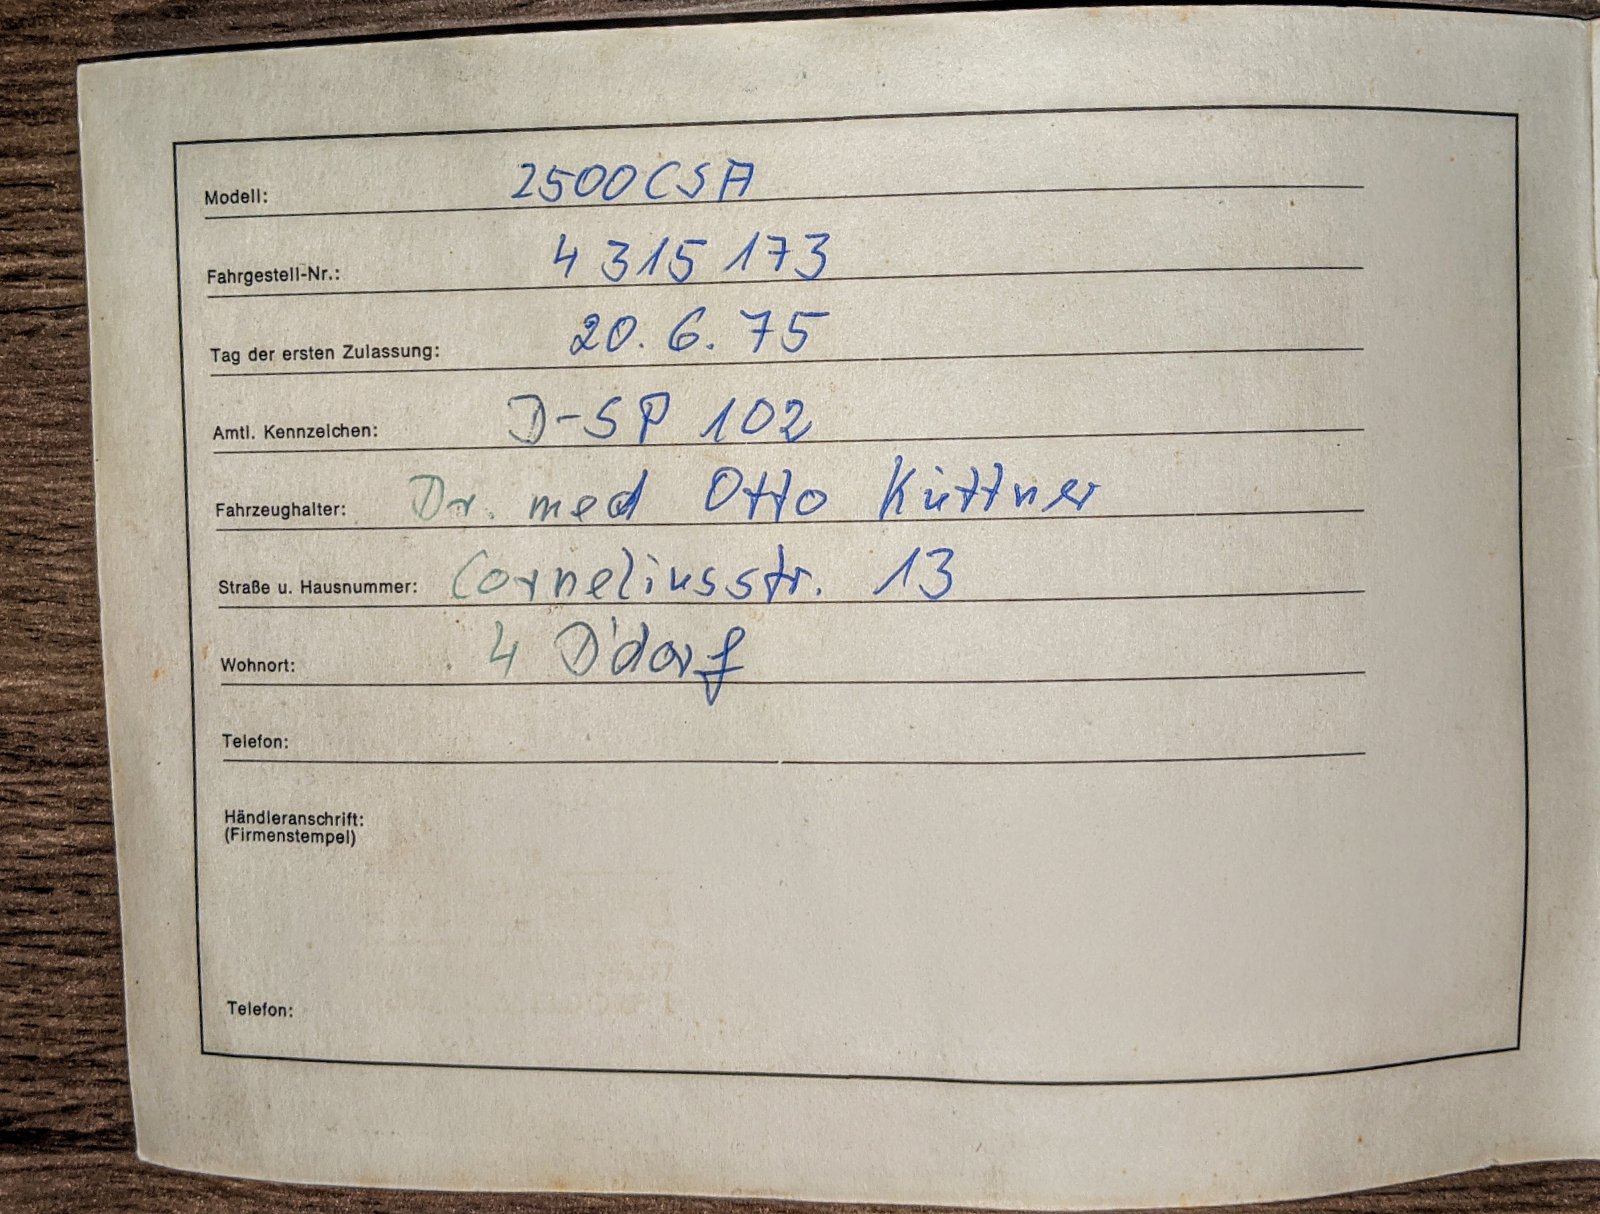 Modell: 2500 CSA
Fahrgestell-Nr.: 4 315 173
Tag der ersten Zulassung: 20. 6. 75
Amtl. Kennzeichen: D-SP 102
Fahrzeughalter: Dr. med Otto Küttner
Straße u. Hausnummer: Corneliusstr. 13
Wohnort: 4 D'dorf
Telefon:
Händleranschrift:
(Firmenstempel)
Telefon: